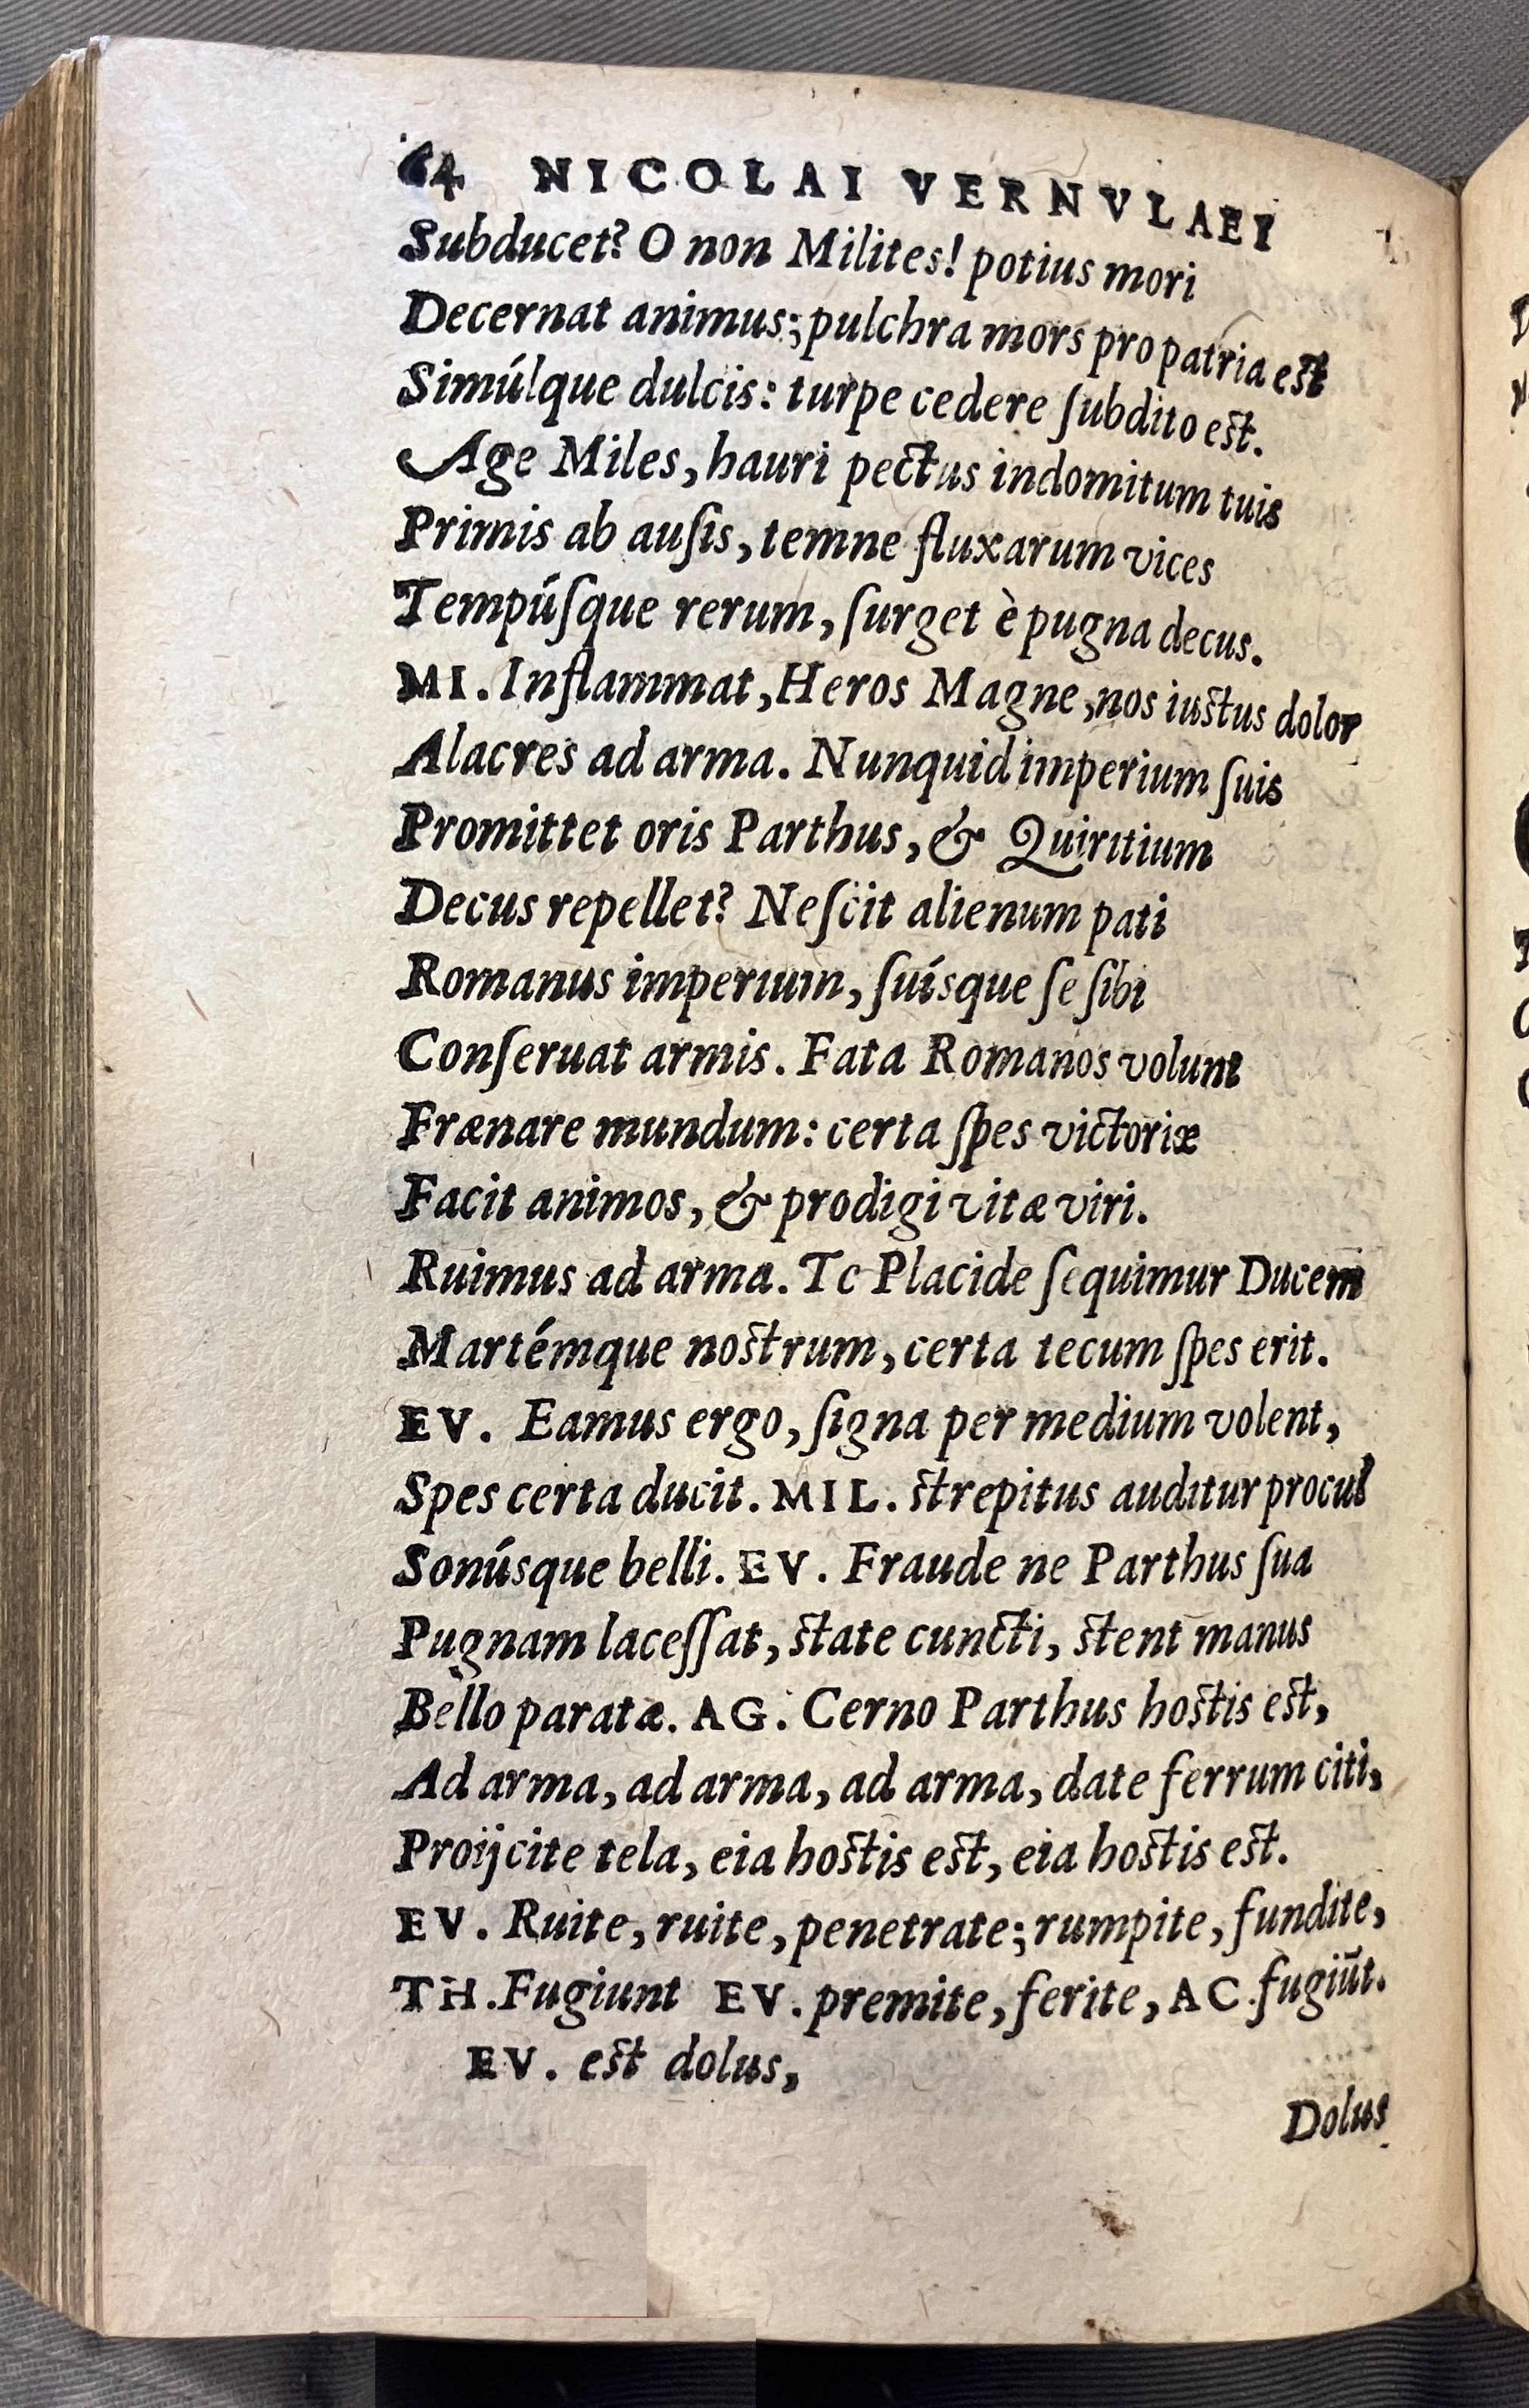 64 NICOLAI VERNVLAEI
Subducet? O non Milites! potius mori
Decernat animus; pulchra mors pro patria est
Simúlque dulcis: turpe cedere ſubdito est.
Age Miles, hauri pectus indomitum tuis
Primis ab auſis, temne fluxarum vices
Tempúſque rerum, ſurget è pugna decus.
MI. Inflammat, Heros Magne, nos iustus dolor
Alacres ad arma. Nunquid imperium ſuis
Promittet oris Parthus, & Quiritium
Decus repellet? Neſcit alienum pati
Romanus imperium, ſuísque ſe ſibi
Conſeruat armis. Fata Romanos volunt
Frænare mundum: certa ſpes victoriæ
Facit animos, & prodigi vitæ viri.
Ruimus ad arma. Te Placide ſequimur Ducem
Martémque nostrum, certa tecum ſpes erit.
EV. Eamus ergo, ſigna per medium volent,
Spes certa ducit. MIL. strepitus auditur procul
Sonúsque belli. EV. Fraude ne Parthus ſua
Pugnam laceſſat, state cuncti, stent manus
Bello paratæ. AG. Cerno Parthus hostis est,
Ad arma, ad arma, ad arma, date ferrum citi,
Proijcite tela, eia hostis est, eia hostis est.
EV. Ruite, ruite, penetrate; rumpite, fundite,
TH. Fugiunt EV. premite, ferite, AC. fugiūt.
EV. est dolus,
Dolus